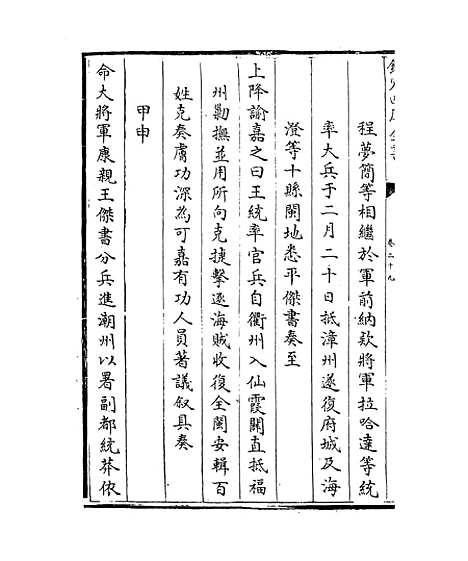 欽定四庫全書
卷二十九
程夢簡等相繼於軍前納欵將軍拉哈達等統
率大兵于二月二十日抵漳州遂復府城及海
澄等十縣閩地悉平傑書奏至
上降諭嘉之曰王統率官兵自衢州入仙霞關直抵福
州勦撫並用所向克捷擊逐海賊收復全閩安輯百
姓克奏膚功深為可嘉有功人員著議叙具奏
甲申
命大將軍康親王傑書分兵進潮州以署副都統莽依